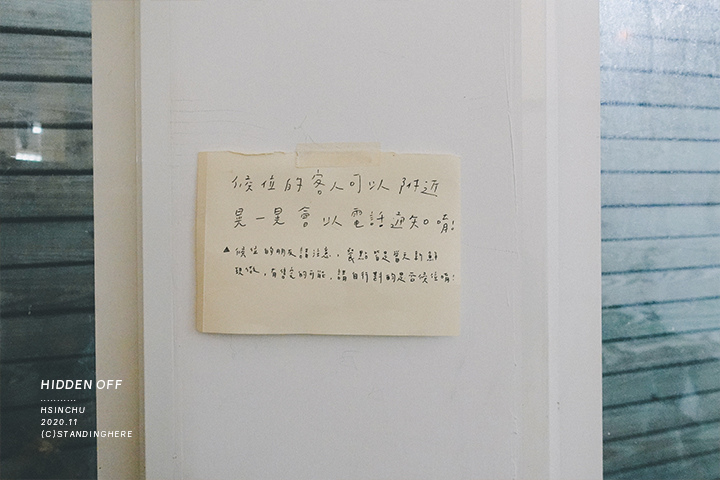 候位的客人可以附近
晃一晃會以電話通知唷!
▲候位的朋友請注意,餐點皆是當天新鮮
現做,有售完的可能,請自行斟酌是否候位唷!
HIDDEN OFF
...........
HSINCHU
2020.11
(C)STANDINGHERE